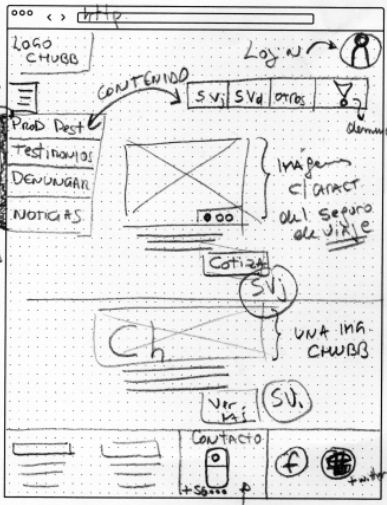 http.
LOGO
CHUBB
Login
CONTENIDO
SVj SVd otros
Prod Dest
Testimonios
DENUNCIAR
NOTICIAS
Imágenes
c/ caract
del seguro
de viaje
Cotiza
SVj
Ch
UNA IMG.
CHUBB
Ver
Más
CONTACTO
+56
f